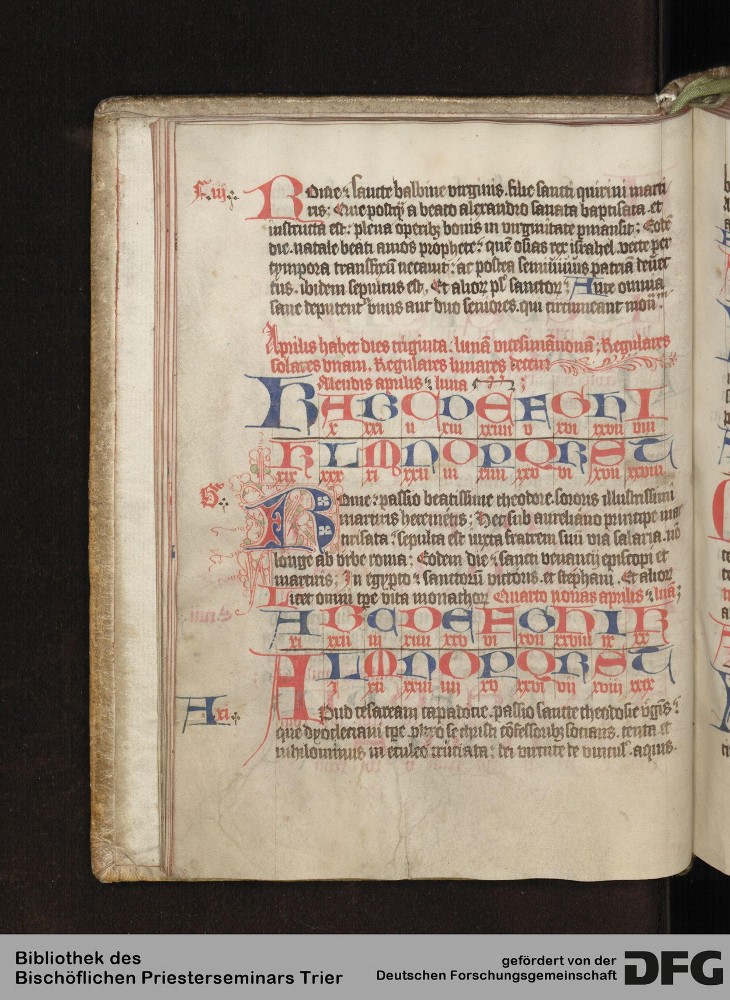 F. iij.
Rome ⁊ sancte balbine virginis. filie sancti quirini marti
ris: Que postq̄ a beato alexandro sanata baptisata. et
instructa est: plena operibꝫ bonis in virginitate ꝑmansit: Eodē
die. natale beati amos prophete: quē osias rex israhel. vecte per
tympora transfixū necauit: ac postea semiuiuus patriā
tus. ibidem sepultus est. Et alioꝝ pl̄ sanctoꝝ: Ante omnia
sane deputent̄ vnus aut duo seniores. qui circumeant mon̄
Aprilis habet dies triginta. lunā vicesimānonā: Regulares
solares vnam. Regulares lunares decem
Kalendis aprilis ⁊ luna
A B C D E F G H I
x xxi ii xiii xxiiii v xvi xxvii viii
K L M N O P Q R S T
xix xxx xi xxii iii xiiii xxv vi xvii xxviii
G.
Rome: passio beatissime theodore. sororis illustrissimi
martiris hermetis: Hec sub aureliano principe mar
tirisata: sepulta est iuxta fratrem suū viā salaria. nō
longe ab vrbe roma: Eodem die ⁊ sancti venancij episcopi et
martiris: In egypto ⁊ sanctorū victoris. et stephani. Et alioꝝ
Licet omni tꝑe vita monachoꝝ Quarto nonas aprilis ⁊ lunā:
A B C D E F G H I K
xi xxii iii xiiii xxv vi xvii xxviii ix xx
L M N O P Q R S T
i xii xxiii iiii xv xxvi vii xviii xxix
A. xi.
Apud cesaream capadocie. passio sancte theodosie v̄gīs:
que dyocleciani tꝑe. vltro se christi cōfessoribꝫ socians. tenta et
nihilominus in eculeo cruciata: dei virtute de vinculꝭ. aquis.
Bibliothek des
Bischöflichen Priesterseminars Trier
gefördert von der
Deutschen Forschungsgemeinschaft
DFG